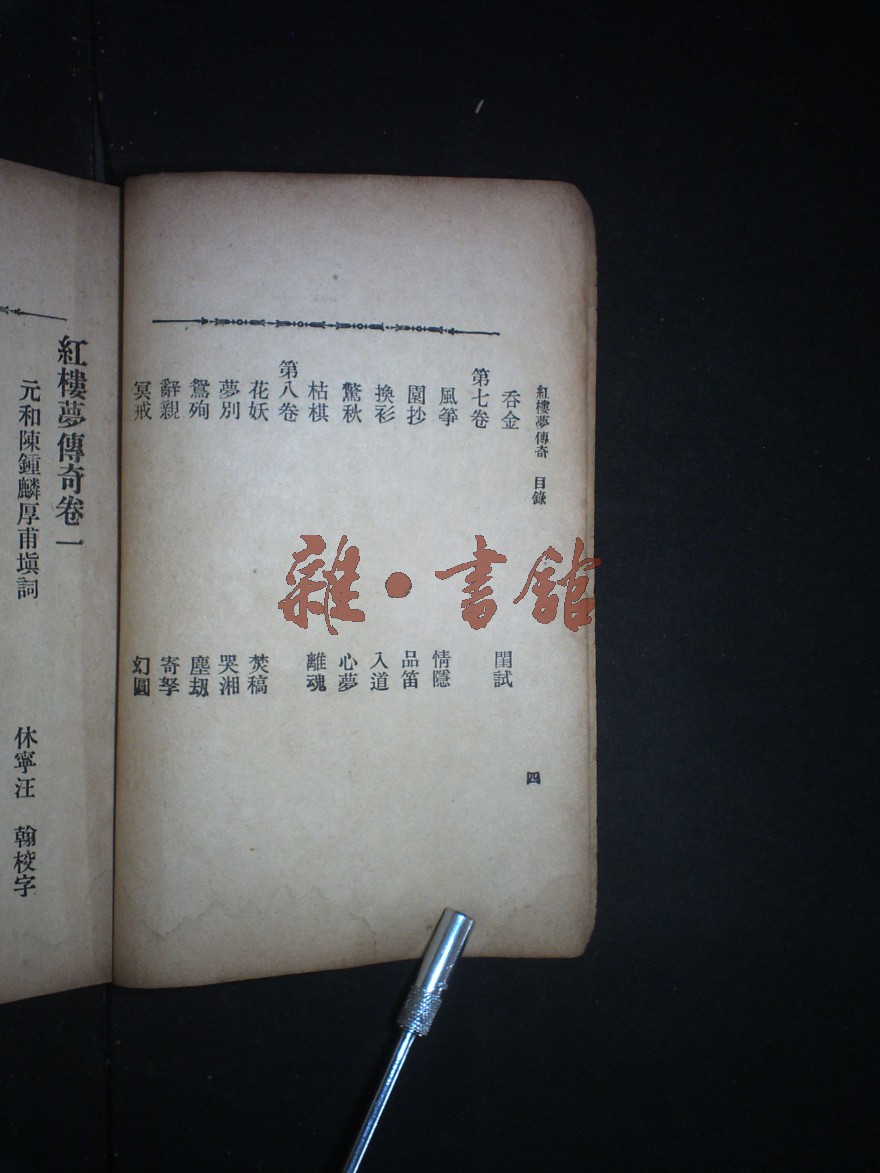 紅樓夢傳奇 目錄 四
吞金 閨試
第七卷
風箏 情隱
園抄 品笛
換衫 入道
驚秋 心夢
枯棋 離魂
第八卷
花妖 焚稿
夢別 哭湘
鴛殉 塵劫
辭親 寄孥
冥戒 幻圓
紅樓夢傳奇卷一
元和陳鍾麟厚甫塡詞 休寧汪 翰校字
雜·書館